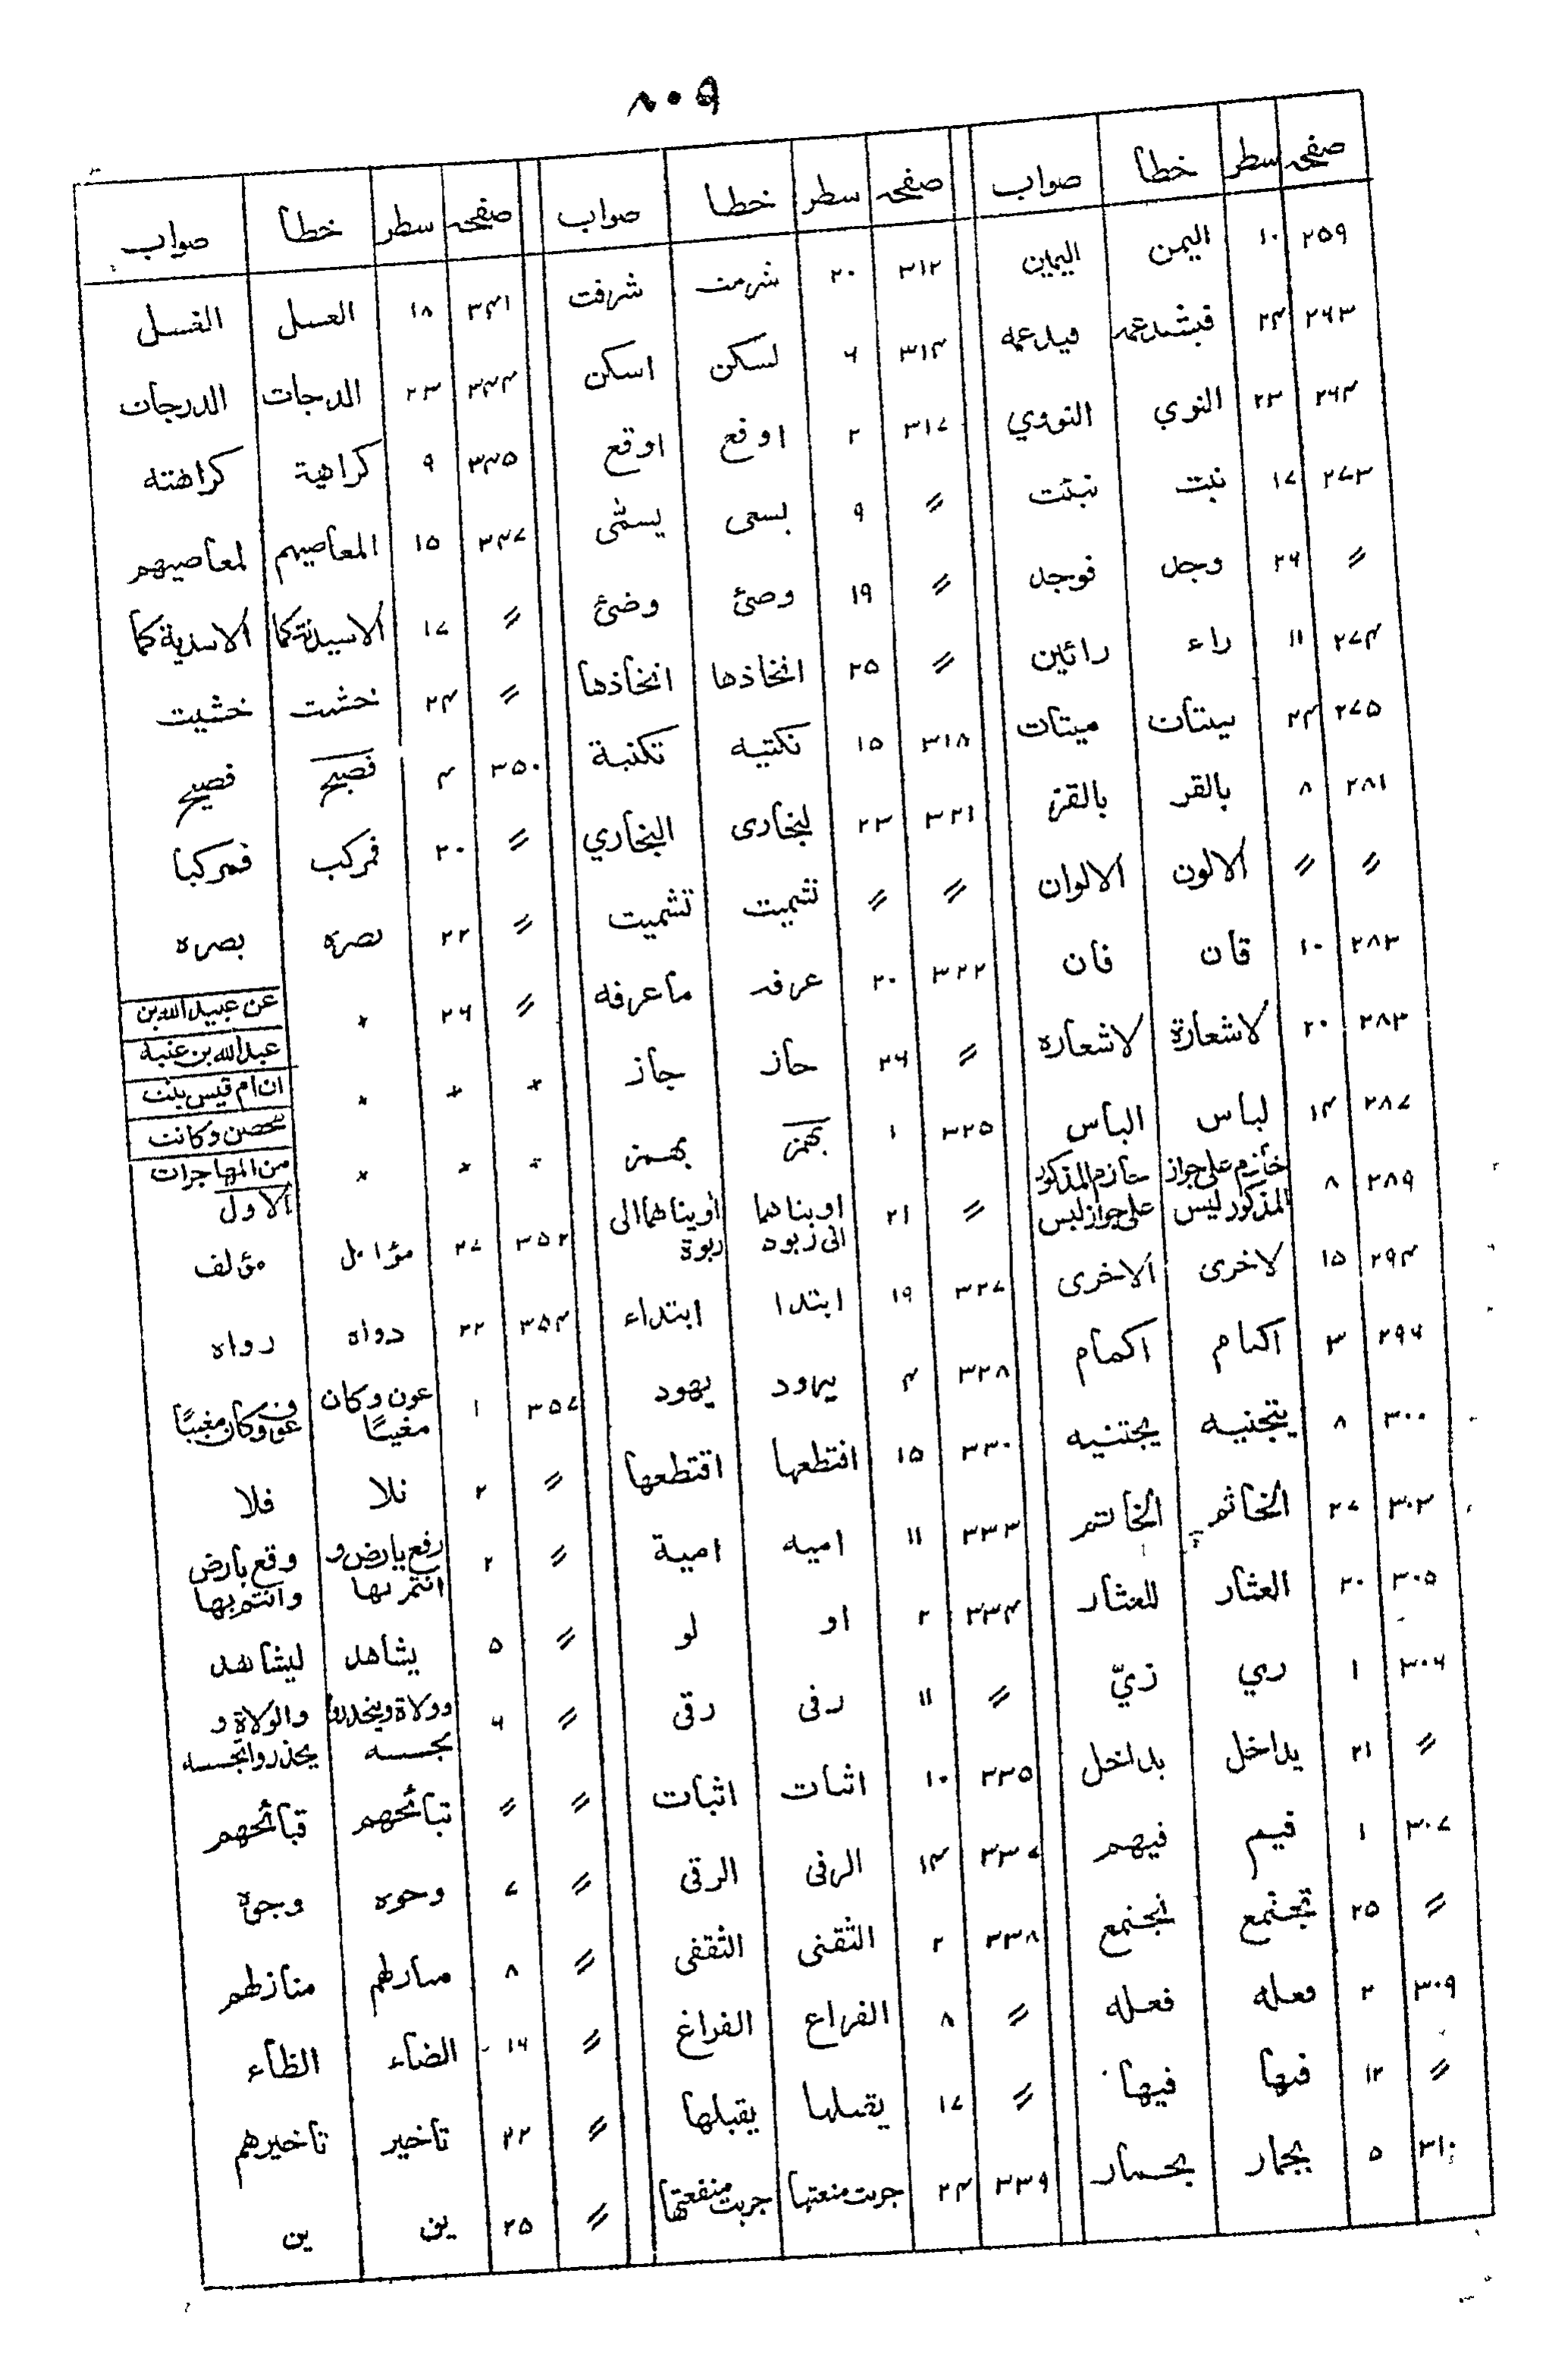 ٨٠٩
صفحہ سطر خطأ صواب
٢٥٩ ١٠ اليمن اليمين
٢٦٣ ٢٤ فيدعمه
٢٦٤ ٢٣ النوي النووي
٢٧٣ ١٧ نبت نبئت
〃 ٢٦ وجد فوجد
٢٧٤ ١١ راء رائين
٢٧٥ ٢٤ ميتات
٢٨١ ٨ بالقر بالقز
〃 〃 الالون الالوان
٢٨٣ ١٠ قان فان
٢٨٣ ٢٠ لاشعارة لاشعاره
٢٨٧ ١٤ لباس الباس
٢٨٩ ٨ خأزم على جواز المذكور ليس حازم المذكور على جواز لبس
٢٩٤ ١٥ لاخرى الاخرى
٢٩٦ ٣ اكىام اكمام
٣٠٠ ٨ يتجنيه يجتنيه
٣٠٣ ٢٧ الخاثم الخاتم
٣٠٥ ٢٠ العثار للعثار
٣٠٦ ١ ري زيّ
〃 ٢١ يداخل بداخل
٣٠٧ ١ فيم فيهم
〃 ٢٥ تجتمع نجتمع
٣٠٩ ٢ معله فعله
〃 ١٢ فىها فيها
٣١٠ ٥ بجمار بحمار
صفحہ سطر خطأ صواب
٣١٢ ٢٠ شرمت شرفت
٣١٤ ٦ لسكن اسكن
٣١٧ ٢ اوفع اوقع
〃 ٩ بسعى يسمّى
〃 ١٩ وصئ وضئ
〃 ٢٥ انخاذها اتخاذها
٣١٨ ١٥ نكتيه تكنية
٣٢١ ٢٣ لبخارى البخاري
〃 〃 نثميت تشميت
٣٢٢ ٢٠ عرفه ماعرفه
〃 ٢٦ حاز جاز
٣٢٥ ١ بهمز
〃 ٢١ اوبناهما الى زبوه أويناهما الى ربوة
٣٢٧ ١٩ ابتدا ابتداء
٣٢٨ ٤ يهود
٣٣٠ ١٥ افتطعها اقتطعها
٣٣٣ ١١ اميه امية
٣٣٤ ٢ او لو
〃 ١١ رفى رقى
٣٣٥ ١٠ اثىات اثبات
٣٣٧ ١٤ الرفى الرقى
٣٣٨ ٢ الثقنى الثقفى
〃 ٨ الفراع الفراغ
〃 ١٧ يقىلها يقبلها
٣٣٩ ٢٤ جربت منعتها جربت منفعتها
صفحہ سطر خطأ صواب
٣٤١ ١٨ العسل الغسل
٣٤٤ ٢٣ الدجات الدرجات
٣٤٥ ٩ كراهية كراهته
٣٤٧ ١٥ المعاصيهم لمعاصيهم
〃 ١٧ الاسيدية كما الاسدية كما
〃 ٢٤ خشت خشيت
٣٥٠ ٤ فصبح فصيح
〃 ٢٠ فمركب فمركبا
〃 ٢٢ نصره بصره
〃 ٢٦ × عن عبيد الله بن
عبد الله بن عتبة
× × × ان ام قيس بنت
محصن وكانت
× × × من المهاجرات
الاول
٣٥٢ ٢٧ مؤلف
٣٥٤ ٢٢ دواه رواه
٣٥٧ ١ عون وكان مغيبًا عوف وكان مغيبًا
〃 ٢ نلا فلا
〃 ٢ رفع بارض و انتم بها وقع بارض وانتم بها
〃 ٥ يشاهد ليشاهد
〃 ٦ وولاة ويحذروا بجسسه والولاة و يحذروا تجسسه
〃 〃 تبائحهم قبائحهم
〃 ٧ وحوه وجوه
〃 ٨ مىارلهم منازلهم
〃 ١٦ الضاء الظاء
〃 ٢٢ تاخير تاخيرهم
〃 ٢٥ يف ين